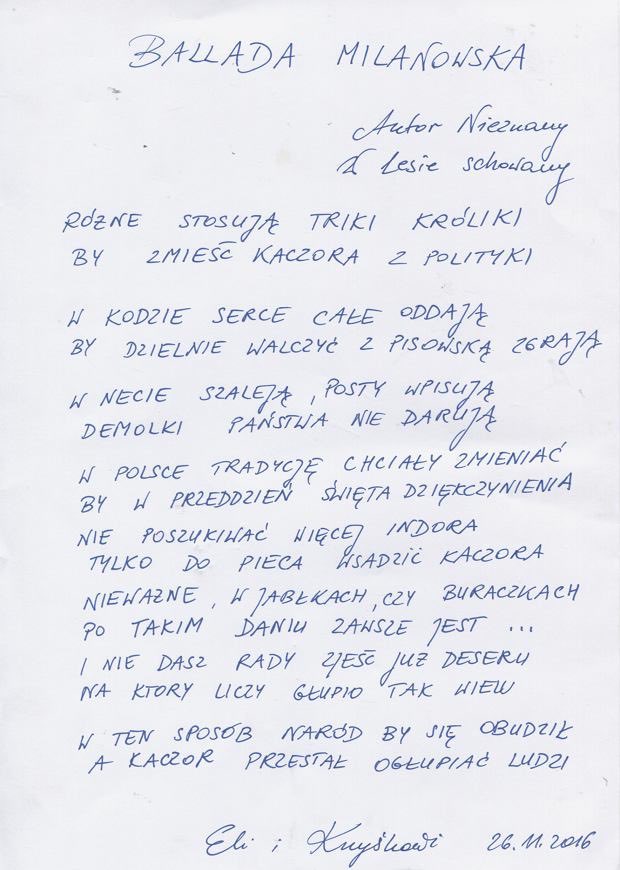 BALLADA MILANOWSKA
Autor Nieznany
W Lesie schowany
RÓŻNE STOSUJĄ TRIKI KRÓLIKI
BY ZMIEŚĆ KACZORA Z POLITYKI
W KODZIE SERCE CAŁE ODDAJĄ
BY DZIELNIE WALCZYĆ Z PISOWSKĄ ZGRAJĄ
W NECIE SZALEJĄ, POSTY WPISUJĄ
DEMOLKI PAŃSTWA NIE DARUJĄ
W POLSCE TRADYCJĘ CHCIAŁY ZMIENIAĆ
BY W PRZEDDZIEŃ ŚWIĘTA DZIĘKCZYNIENIA
NIE POSZUKIWAĆ WIĘCEJ INDORA
TYLKO DO PIECA WSADZIĆ KACZORA
NIEWAŻNE, W JABŁKACH, CZY BURACZKACH
PO TAKIM DANIU ZAWSZE JEST ...
I NIE DASZ RADY ZJEŚĆ JUŻ DESERU
NA KTORY LICZY GŁUPIO TAK WIELU
W TEN SPOSÓB NARÓD BY SIĘ OBUDZIŁ
A KACZOR PRZESTAŁ OGŁUPIAĆ LUDZI
Eli i Krzyśkowi 26.11.2016